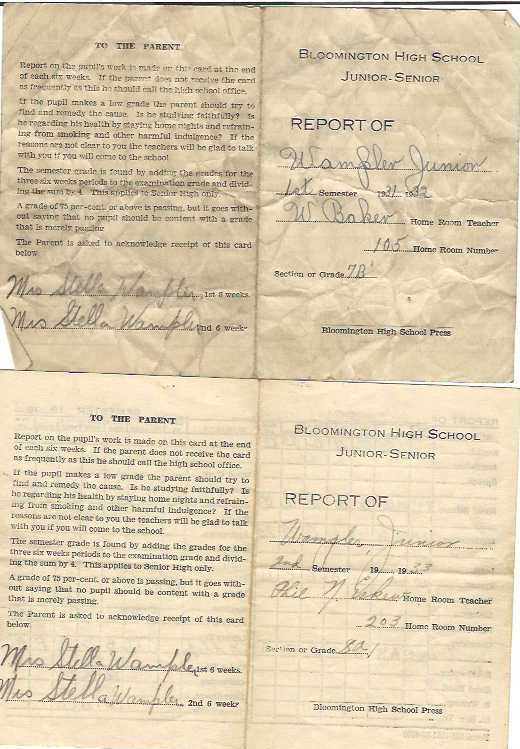 TO THE PARENT
Report on the pupil's work is made on this card at the end
of each six weeks. If the parent does not receive the card
as frequently as this he should call the high school office.
If the pupil makes a low grade the parent should try to
find and remedy the cause. Is he studying faithfully? Is
he regarding his health by staying home nights and refrain-
ing from smoking and other harmful indulgence? If the
reasons are not clear to you the teachers will be glad to talk
with you if you will come to the school
The semester grade is found by adding the grades for the
three six weeks periods to the examination grade and divid-
ing the sum by 4. This applies to Senior High only.
A grade of 75 per-cent. or above is passing, but it goes with-
out saying that no pupil should be content with a grade
that is merely passing
The Parent is asked to acknowledge receipt of this card
below.
Mrs Stella Wampler 1st 6 weeks.
Mrs Stella Wampler 2nd 6 weeks
BLOOMINGTON HIGH SCHOOL
JUNIOR-SENIOR
REPORT OF
Wampler Junior
1st Semester 1931 1932
W Baker Home Room Teacher
105 Home Room Number
Section or Grade 7B
Bloomington High School Press
TO THE PARENT
Report on the pupil's work is made on this card at the end
of each six weeks. If the parent does not receive the card
as frequently as this he should call the high school office.
If the pupil makes a low grade the parent should try to
find and remedy the cause. Is he studying faithfully? Is
he regarding his health by staying home nights and refrain-
ing from smoking and other harmful indulgence? If the
reasons are not clear to you the teachers will be glad to talk
with you if you will come to the school.
The semester grade is found by adding the grades for the
three six weeks periods to the examination grade and divid-
ing the sum by 4. This applies to Senior High only.
A grade of 75 per-cent. or above is passing, but it goes with-
out saying that no pupil should be content with a grade
that is merely passing.
The Parent is asked to acknowledge receipt of this card
below.
Mrs Stella Wampler 1st 6 weeks.
Mrs Stella Wampler 2nd 6 weeks
BLOOMINGTON HIGH SCHOOL
JUNIOR-SENIOR
REPORT OF
Wampler, Junior
2nd Semester 19 1933
Home Room Teacher
203 Home Room Number
Section or Grade 8a1
Bloomington High School Press